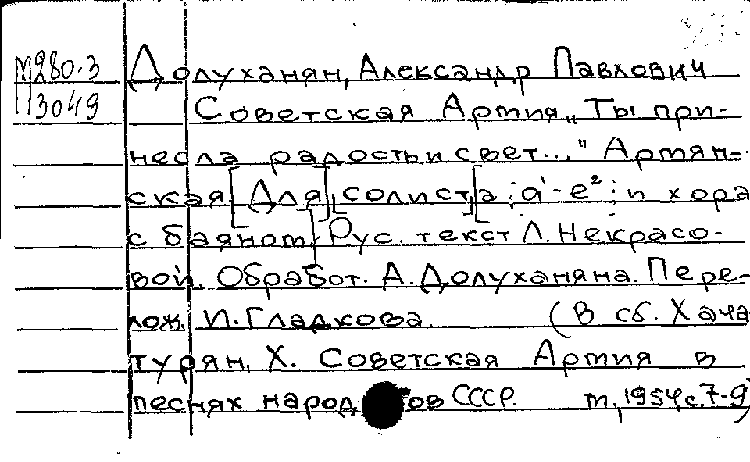 М280-3
П3049
Долуханян, Александр Павлович
Советская Армия „Ты при-
несла радость и свет..." Армян-
ская [Для] солист[а; a¹-e²; и хора
с баяном] Рус. текст Л. Некрасо-
вой. Обработ. А. Долуханяна. Пере-
лож. И. Гладкова. (В сб. Хача
турян, Х. Советская Армия в
песнях народов СССР. М, 1954, с. 7-9